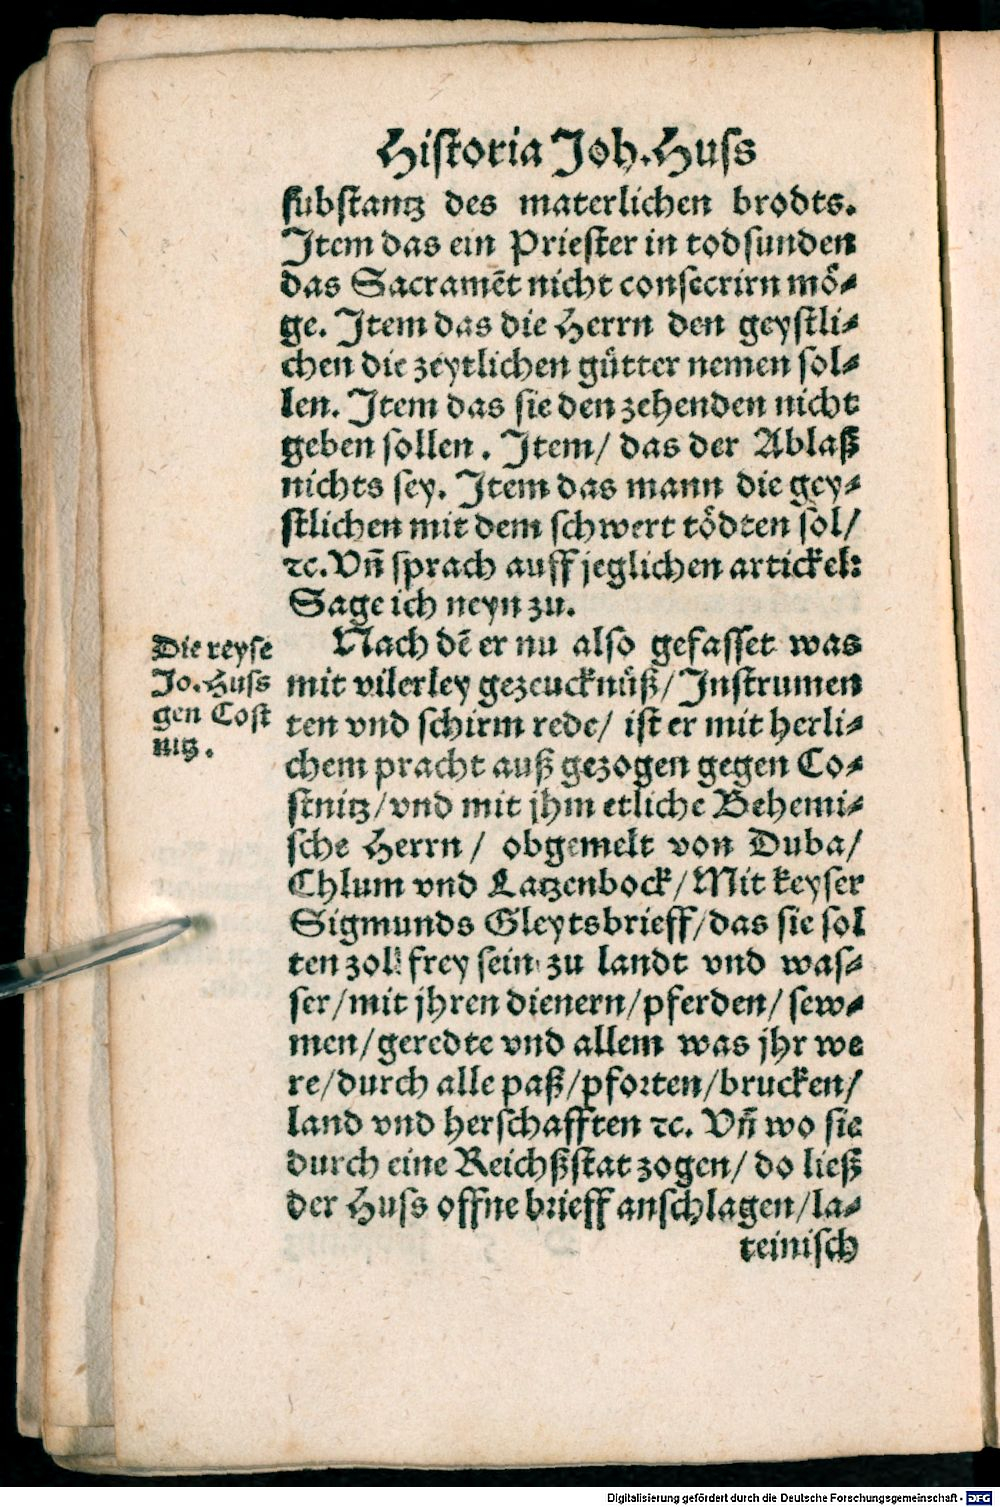 Historia Joh. Huss
substantz des materlichen brodts.
Item das ein Priester in todsunden
das Sacramēt nicht consecrirn mö⸗
ge. Item das die Herrn den geystli⸗
chen die zeytlichen gütter nemen sol⸗
len. Item das sie den zehenden nicht
geben sollen. Item/ das der Ablaß
nichts sey. Item das mann die gey⸗
stlichen mit dem schwert tödten sol/
ꝛc. Vñ sprach auff jeglichen artickel:
Sage ich neyn zu.
Nach dē er nu also gefasset was
mit vilerley gezeucknüß/ Instrumen
ten vnd schirm rede/ ist er mit herli⸗
chem pracht auß gezogen gegen Co⸗
stnitz/ vnd mit jhm etliche Behemi⸗
sche Herrn/ obgemelt von Duba/
Chlum vnd Latzenbock/ Mit keyser
Sigmunds Gleytsbrieff/ das sie sol
ten zoll frey sein zu landt vnd was⸗
ser/ mit jhren dienern/ pferden/ sew⸗
men/ geredte vnd allem was jhr we
re/ durch alle paß/ pforten/ brucken/
land vnd herschafften ꝛc. Vñ wo sie
durch eine Reichßstat zogen/ do ließ
der Huss offne brieff anschlagen/ la⸗
teinisch
Die reyse
Jo. Huss
gen Cost
nitz.
Digitalisierung gefördert durch die Deutsche Forschungsgemeinschaft - DFG